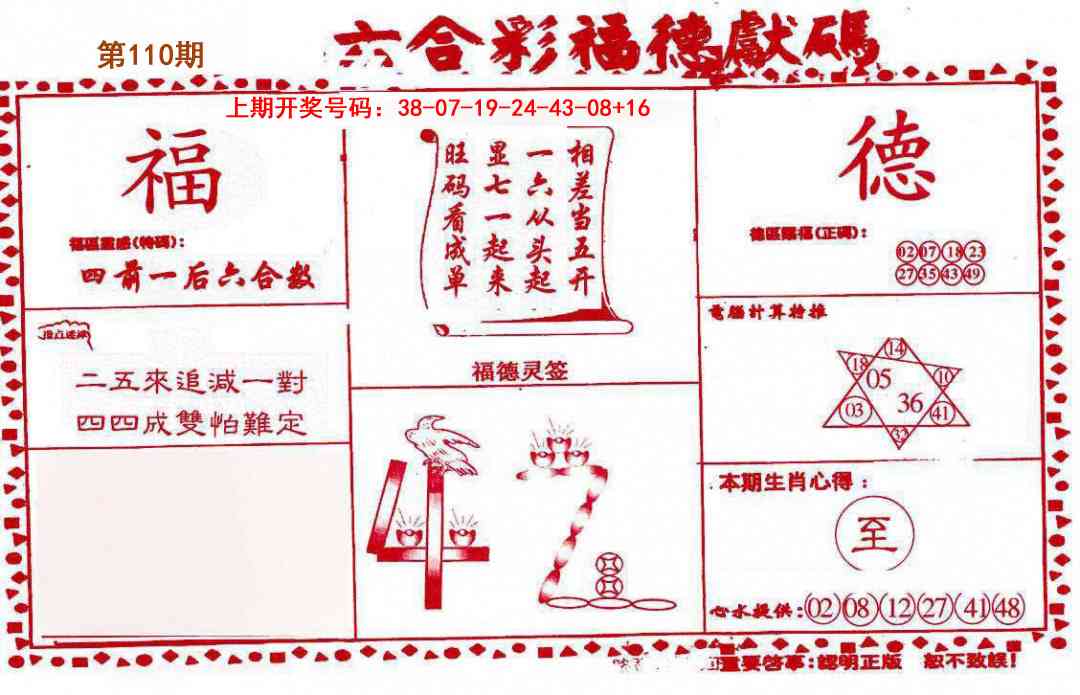 六合彩福德獻碼
第110期
上期开奖号码：38-07-19-24-43-08+16
福
福區靈感(特碼)：
四前一后六合数
二五來追減一對
四四成雙怕難定
相差当五开
一六从头起
显七一起来
旺码看成单
福德灵签
42
德
德區賜福(正碼)：
02 07 18 23
27 35 43 49
電腦計算特推
14
18 10
05
03 36 41
32
本期生肖心得：
至
心水提供：02 08 12 27 41 48
重要啓事：認明正版 恕不致誤！